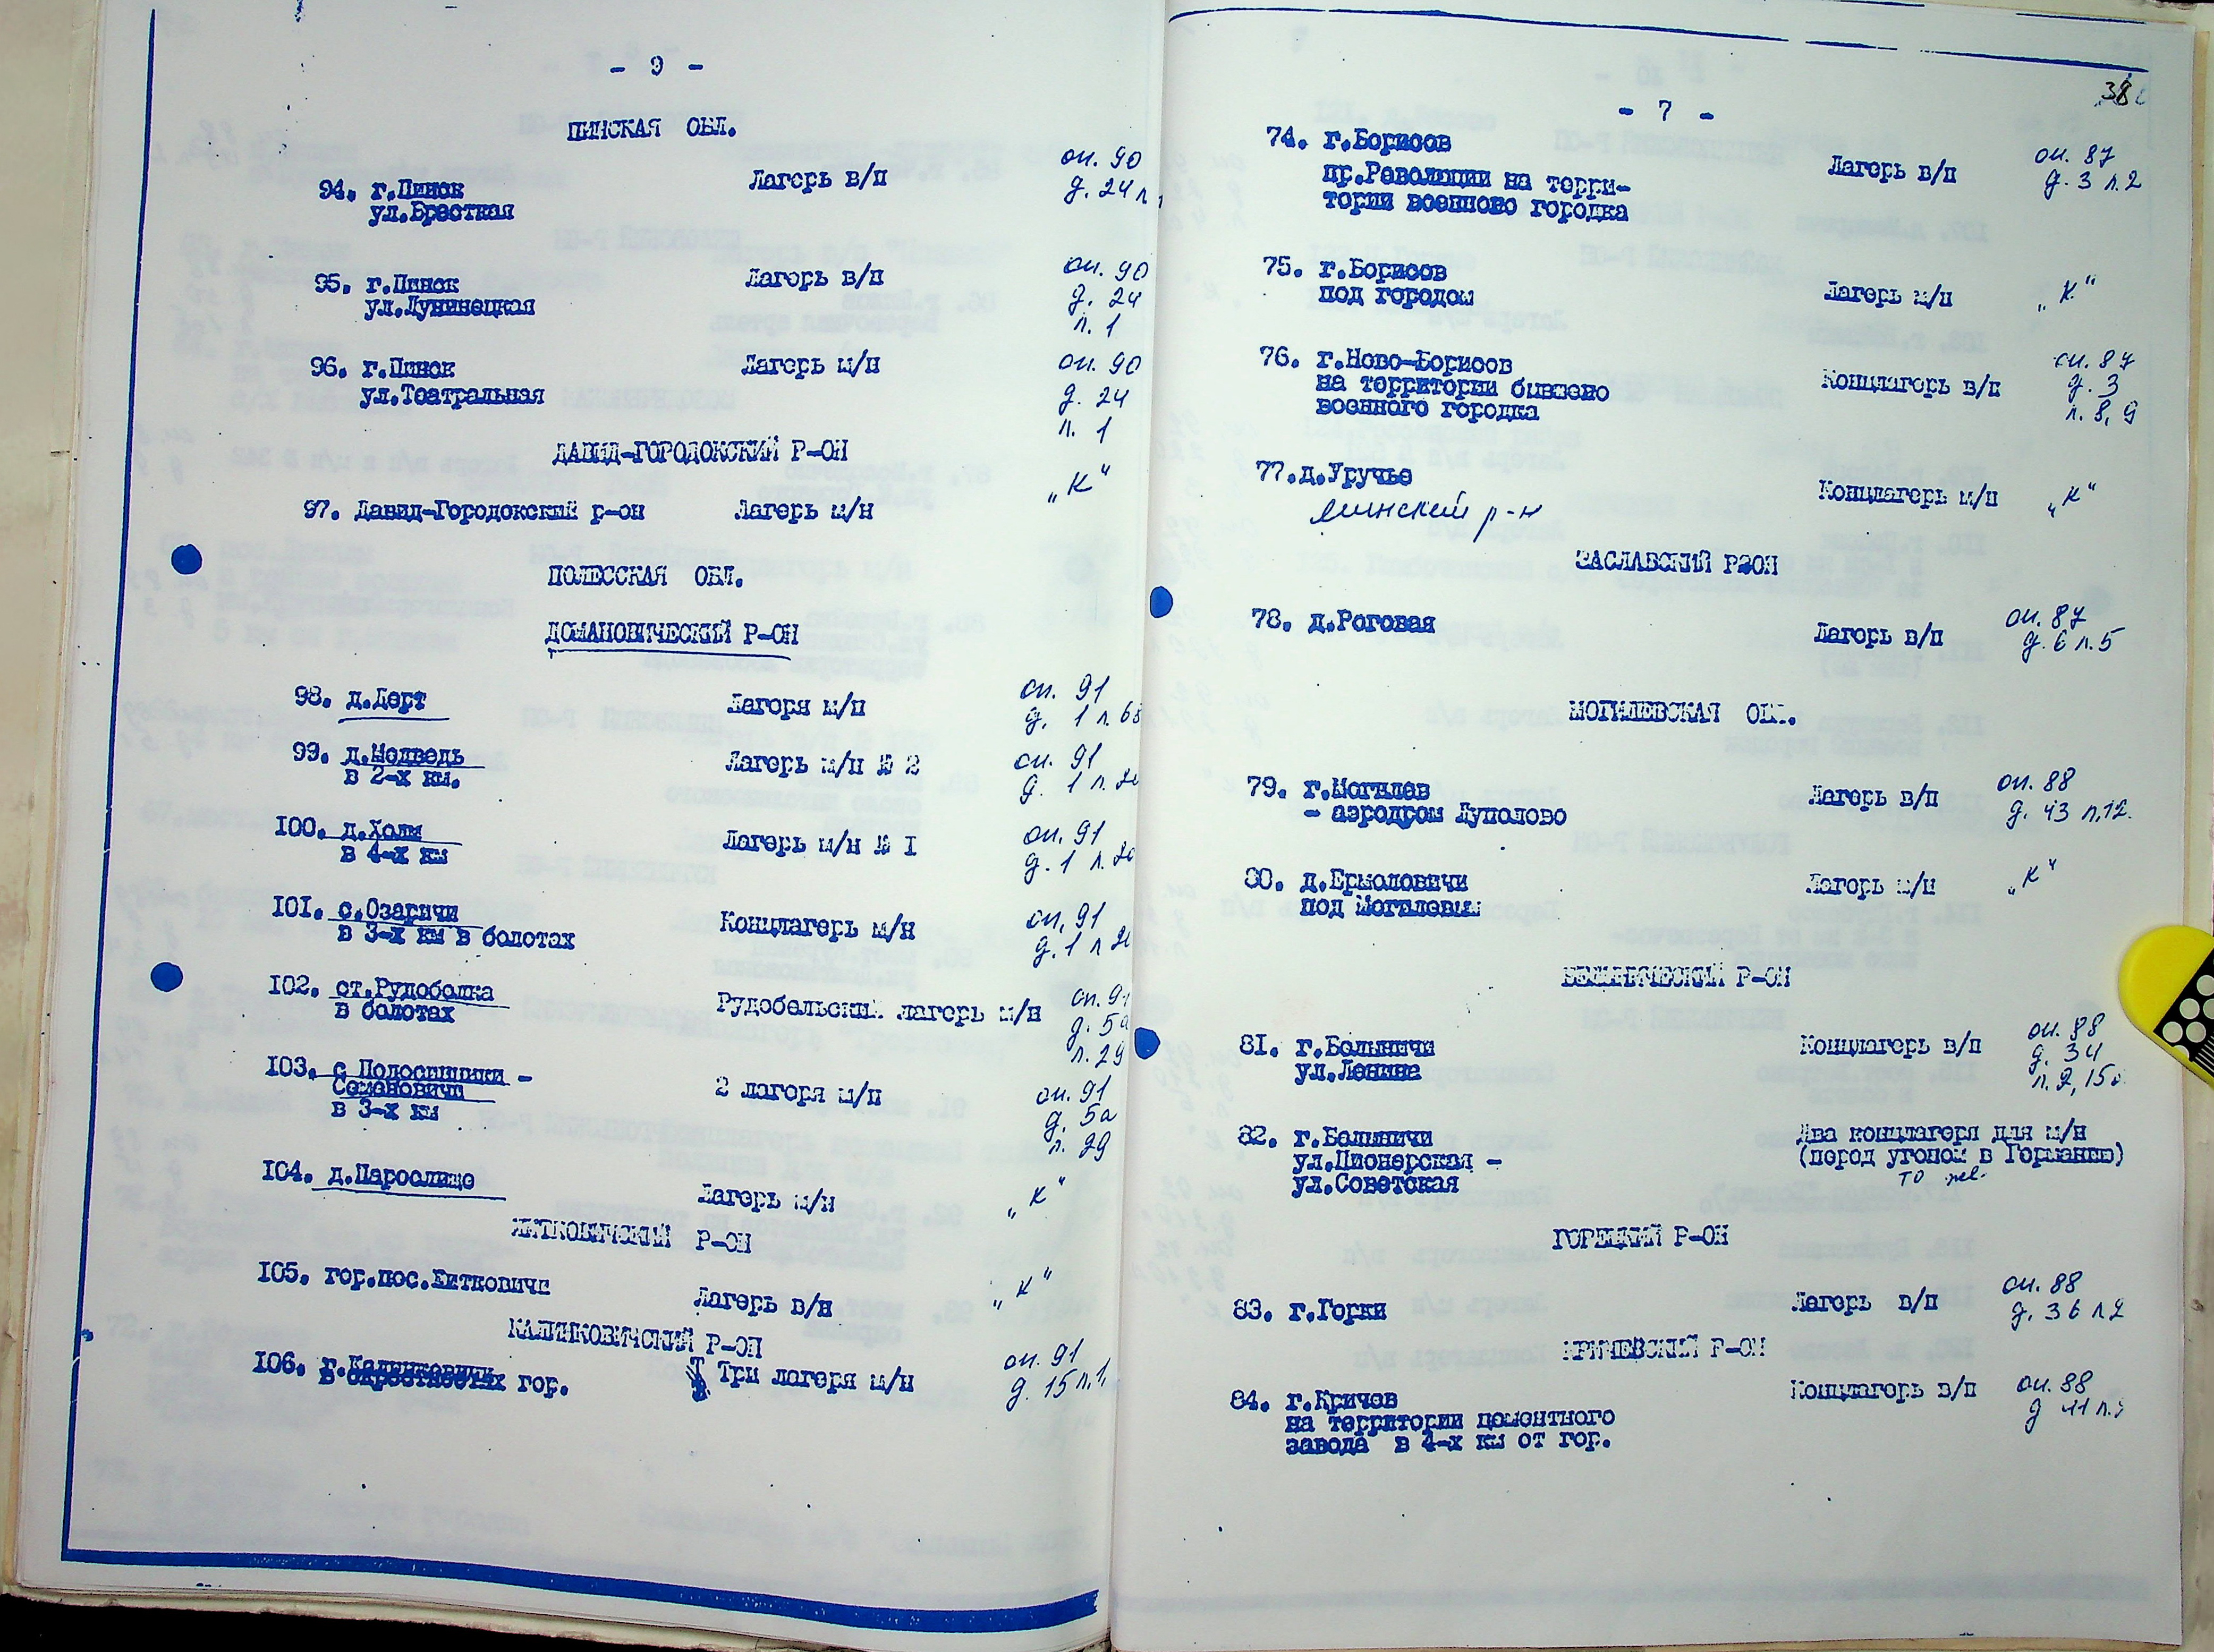 - 9 -
ПИНСКАЯ ОБЛ.
94. г.Пинск Лагерь в/п оп. 90
ул.Брестская д. 24 л.
95. г.Пинск Лагерь в/п оп. 90
ул.Лунинецкая д. 24
л. 1
96. г.Пинск Лагерь м/н оп. 90
ул.Театральная д. 24
л. 1
ДАВИД-ГОРОДОКСКИЙ Р-ОН
97. Давид-Городокский р-он Лагерь м/н "К"
ПОЛЕССКАЯ ОБЛ.
ДОМАНОВИЧЕСКИЙ Р-ОН
98. д.Дерт Лагеря м/н оп. 91
д. 1 л. 68
99. д.Медведь Лагерь м/н № 2 оп. 91
в 2-х км. д. 1 л.
100. д.Холм Лагерь м/н № I оп. 91
в 4-х км д. 1 л.
101. с.Озаричи Концлагерь м/н оп. 91
в 3-х км в болотах д. 1 л
102. ст.Рудобелка Рудобельский лагерь м/н оп. 91
в болотах д. 5а
л. 29
103. с Полосишники - 2 лагеря м/н оп. 91
Семеновичи д. 5а
в 3-х км л. 29
104. д.Парослище Лагерь м/н "К"
ЖИТКОВИЧСКИЙ Р-ОН
105. гор.пос.Житковичи Лагерь в/н "К"
КАЛИНКОВИЧСКИЙ Р-ОН
106. г.Калинковичи Три лагеря м/н оп. 91
в окрестностях гор. д. 15 л. 1,
38
- 7 -
74. г.Борисов Лагерь в/п оп. 87
пр.Революции на терри- д. 3 л. 2
тории военного городка
75. г.Борисов Лагерь м/н "К"
под городом
76. г.Ново-Борисов Концлагерь в/п оп. 87
на территории бывшего д. 3
военного городка л. 8, 9
77.д.Уручье Концлагерь м/н "К"
Минский р-н
ЗАСЛАВСКИЙ РЗОН
78. д.Роговая Лагерь в/п оп. 87
д. 6 л. 5
МОГИЛЕВСКАЯ ОБЛ.
79. г.Могилев Лагерь в/п оп. 88
- аэродром Луполово д. 43 л. 12.
80. д.Ермоловичи Лагерь м/н "К"
под Могилевым
БЕЛЫНИЧЕСКИЙ Р-ОН
81. г.Белыничи Концлагерь в/п оп. 88
ул.Ленина д. 34
л. 2, 15
82. г.Белыничи Два концлагеря для м/н
ул.Пионерская - (перед угоном в Германию)
ул.Советская то же
ГОРЕЦКИЙ Р-ОН
83. г.Горки Лагерь в/п оп. 88
д. 36 л 2
КРИЧЕВСКИЙ Р-ОН
84. г.Кричев Концлагерь в/п оп. 88
на территории цементного д 41 л.
завода в 4-х км от гор.